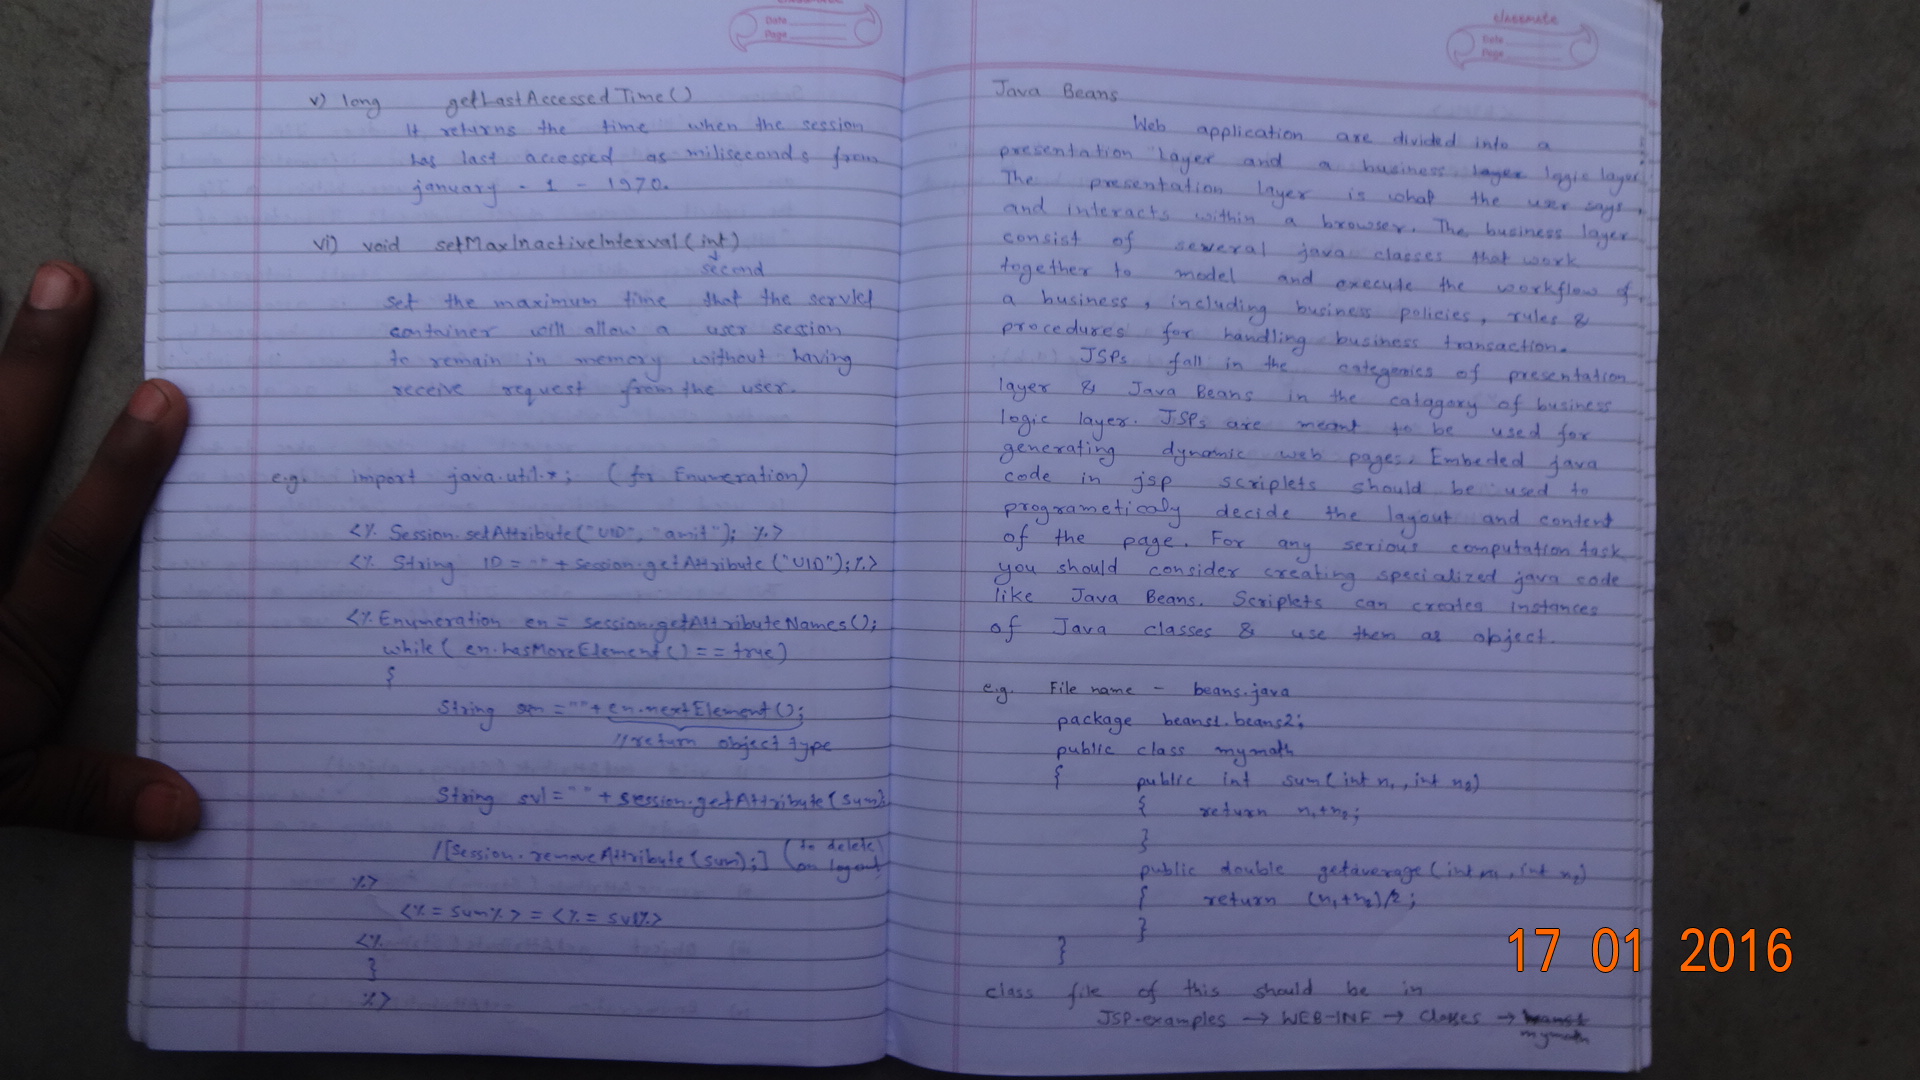 Date
Page
v) long getLastAccessedTime()
It returns the time when the session
has last accessed as miliseconds from
january - 1 - 1970.
vi) void setMaxInactiveInterval(int)
second
set the maximum time that the servlet
container will allow a user session
to remain in memory without having
receive request from the user.
e.g. import java.util.*; (for Enumeration)
<% Session.setAttribute("UID", "amit"); %>
<% String ID = "" + session.getAttribute("UID");%>
<% Enumeration en = session.getAttributeNames();
while( en.hasMoreElement() == true)
{
String = "" + en.nextElement();
//return object type
String svl = "" + session.getAttribute(sum);
/[Session.removeAttribute(sum);] (to delete
on logout)
%>
<%= sum%> = <%= svl%>
<%
}
%>
classmate
Date
Page
Java Beans
Web application are divided into a
presentation layer and a business layer logic layer.
The presentation layer is what the user says,
and interacts within a browser. The business layer
consist of several java classes that work
together to model and execute the workflow of
a business, including business policies, rules &
procedures for handling business transaction.
JSPs fall in the categories of presentation
layer & Java Beans in the catagory of business
logic layer. JSPs are meant to be used for
generating dynamic web pages. Embeded java
code in jsp scriplets should be used to
programeticaly decide the layout and content
of the page. For any serious computation task
you should consider creating specialized java code
like Java Beans. Scriplets can creates instances
of Java classes & use them as object.
e.g. File name - beans.java
package beans1.beans2;
public class mymath
{ public int sum(int n1, int n2)
{ return n1+n2;
}
public double getaverage(int n1, int n2)
{ return (n1+n2)/2;
}
}
class file of this should be in
JSP-examples → WEB-INF → classes →
mymath
17 01 2016